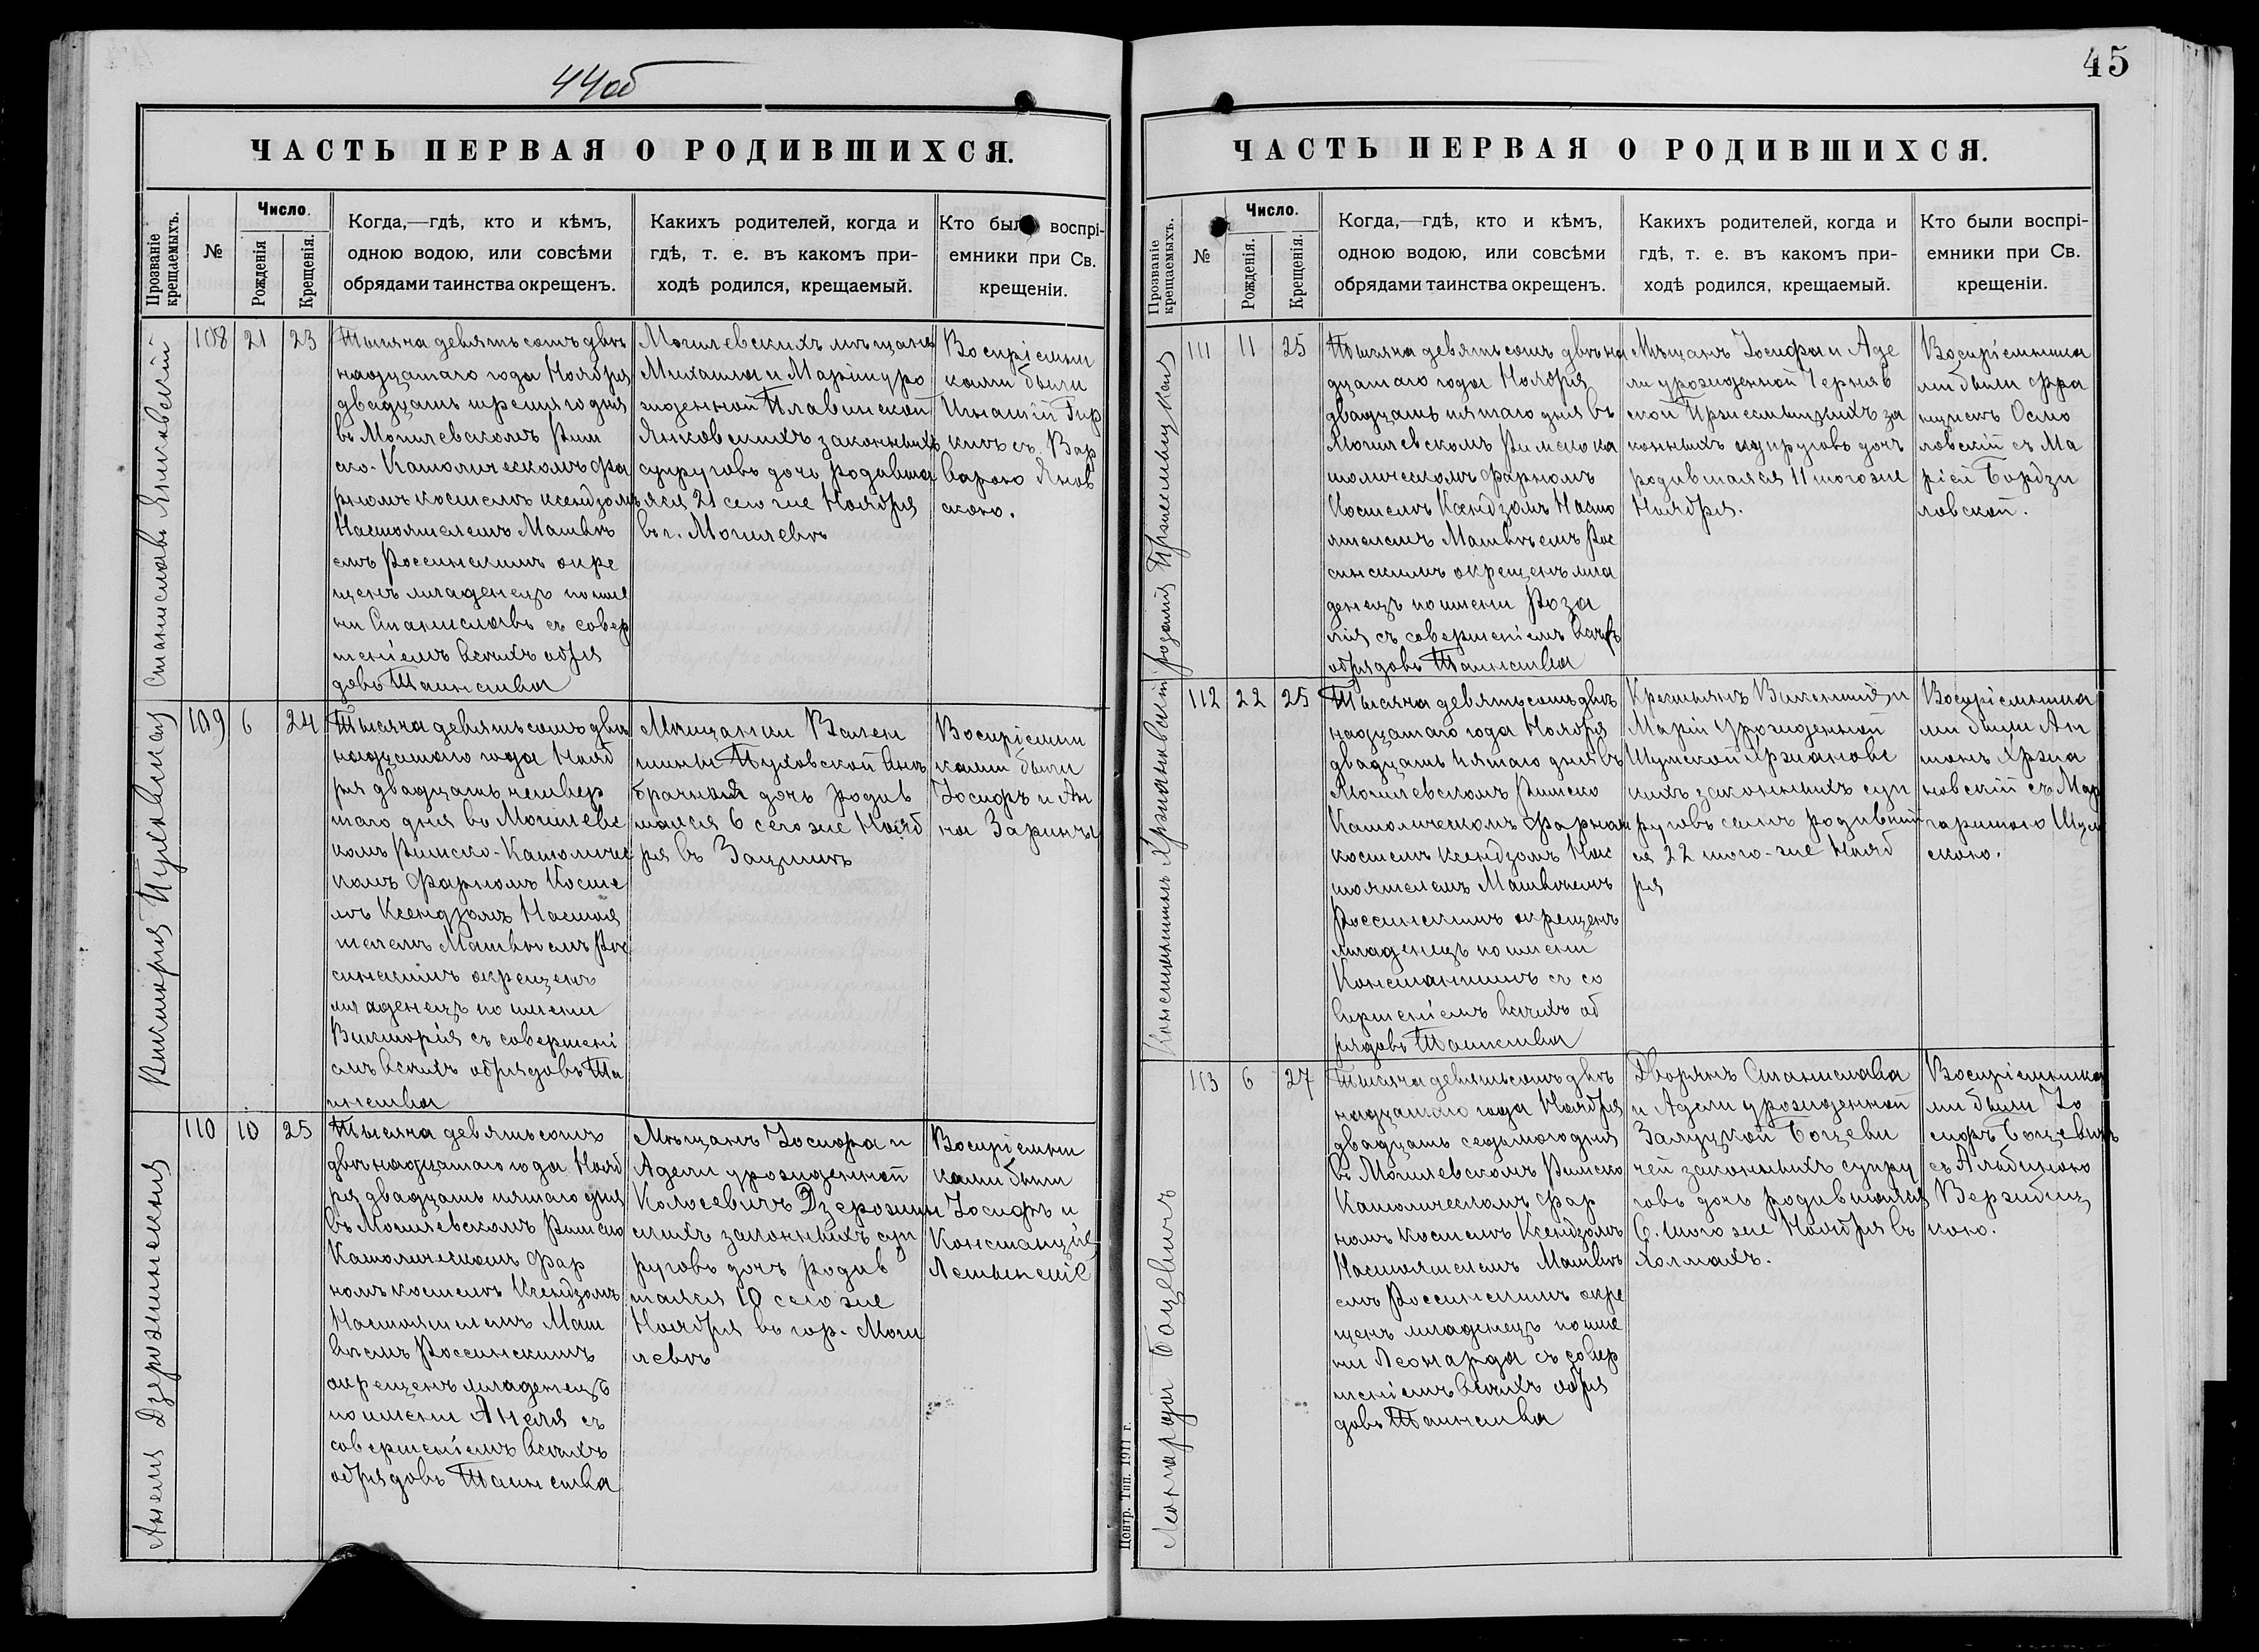 44об
ЧАСТЬ ПЕРВАЯ О РОДИВШИХСЯ.
Прозваніе крещаемыхъ.
№
Число.
Рожденія
Крещенія.
Когда,—гдѣ, кто и кѣмъ,
одною водою, или совсѣми
обрядами таинства окрещенъ.
Какихъ родителей, когда и
гдѣ, т. е. въ какомъ при-
ходѣ родился, крещаемый.
Кто были воспрі-
емники при Св.
крещеніи.
Станиславъ Янковскій
108
21
23
Тысяча девятьсотъ двѣ
надцатаго года Ноября
двадцать третяго дня
въ Могилевскомъ Рим
ско-Католическомъ фа
рномъ костелѣ ксендзомъ
Настоятелемъ Матвѣ
емъ Россинскимъ окре
щенъ младенецъ по име
ни Станиславъ съ совер
шеніемъ всѣхъ обря
довъ Таинства
Могилевскихъ мѣщанъ
Михаила и Маріи уро
жденной Плавинской
Янковскихъ законныхъ
супруговъ дочь родивша
яся 21 сего же Ноября
въ г. Могилевѣ
Воспріемни
ками были
Игнатій Гир
кисъ съ Вар
варою Янов
скою.
Викторія Пуховская
109
6
24
Тысяча девятьсотъ двѣ
надцатаго года Нояб
ря двадцать четвер
таго дня въ Могилевс
комъ Римско-Католичес
комъ Фарномъ Косте
лѣ Ксендзомъ Настоя
телемъ Матвѣемъ Рос
синскимъ окрещенъ
младенецъ по имени
Викторія съ совершені
емъ всѣхъ обрядовъ Та
инства
Мѣщанки Вален
тины Пуховской внѣ
брачная дочь родив
шаяся 6 сего же Нояб
ря въ Защитѣ
Воспріемни
ками были
Іосифъ и Ан
на Заринчы
Анеля Дзерожинская
110
10
25
Тысяча девятьсотъ
двѣнадцатаго года Нояб
ря двадцать пятаго дня
въ Могилевскомъ Римско
Католическомъ Фар
номъ костелѣ Ксендзомъ
Настоятелемъ Мат
вѣемъ Россинскимъ
окрещенъ младенецъ
по имени Анеля съ
совершеніемъ всѣхъ
обрядовъ Таинства
Мѣщанъ Іосифа и
Адели урожденной
Колосевичъ Дзерожин
скихъ законныхъ суп
руговъ дочь родив
шаяся 10 сего же
Ноября въ гор. Моги
левѣ
Воспріемни
ками были
Іосифъ и
Констанція
45
ЧАСТЬ ПЕРВАЯ О РОДИВШИХСЯ.
Прозваніе крещаемыхъ.
№
Число.
Рожденія.
Крещенія.
Когда,—гдѣ, кто и кѣмъ,
одною водою, или совсѣми
обрядами таинства окрещенъ.
Какихъ родителей, когда и
гдѣ, т. е. въ какомъ при-
ходѣ родился, крещаемый.
Кто были воспрі-
емники при Св.
крещеніи.
Розалія
111
11
25
Тысяча девятьсотъ двѣна
дцатаго года Ноября
двадцать пятаго дня въ
Могилевскомъ Римско ка
толическомъ Фарномъ
Костелѣ Ксендзомъ Насто
ятелемъ Матвѣемъ Рос
синскимъ окрещенъ мла
денецъ по имени Роза
лія съ совершеніемъ всѣхъ
обрядовъ Таинства
Мѣщанъ Іосифа и Аде
ли урожденной Черняв
ской за
конныхъ супруговъ дочь
родившаяся 11 того же
Ноября.
Воспріемника
ми были фра
нцишъ Осмо
ловскій съ Ма
ріей Бордзи
ловской.
Константинъ Хржановскій
112
22
25
Тысяча девятьсотъ двѣ
надцатаго года Ноября
двадцать пятаго дня въ
Могилевскомъ Римско
Католическомъ Фарном
костелѣ ксендзомъ Нас
тоятелемъ Матвѣемъ
Россинскимъ окрещенъ
младенецъ по имени
Константинъ съ со
вершеніемъ всѣхъ об
рядовъ Таинства
Крестьянъ Викентія и
Маріи Урожденной
Шумской Хржановс
кихъ законныхъ суп
руговъ сынъ родивший
ся 22 того-же Нояб
ря
Воспріемника
ми были Ан
тонъ Хржа
новскій съ Мар
гаритою Шум
скою.
Леонарда Боцевичъ
113
6
27
Тысяча девятьсотъ двѣ
надцатаго года Ноября
двадцать седьмого дня
въ Могилевскомъ Римско
Католическомъ Фар
номъ костелѣ Ксендзомъ
Настоятелемъ Матвѣ
емъ Россинскимъ окре
щенъ младенецъ по име
ни Леонарда съ совер
шеніемъ всѣхъ обря
довъ Таинства
Дворянъ Станислава
и Адели урожденной
Залуцкой Боцеви
чей законныхъ супру
говъ дочь родившаяся
6. того же Ноября въ
Холмахъ.
Воспріемника
ми были Іо
сифъ Боцевичъ
съ Альбиною
Вержбиц
кою.
Центр. Тип. 1911 г.